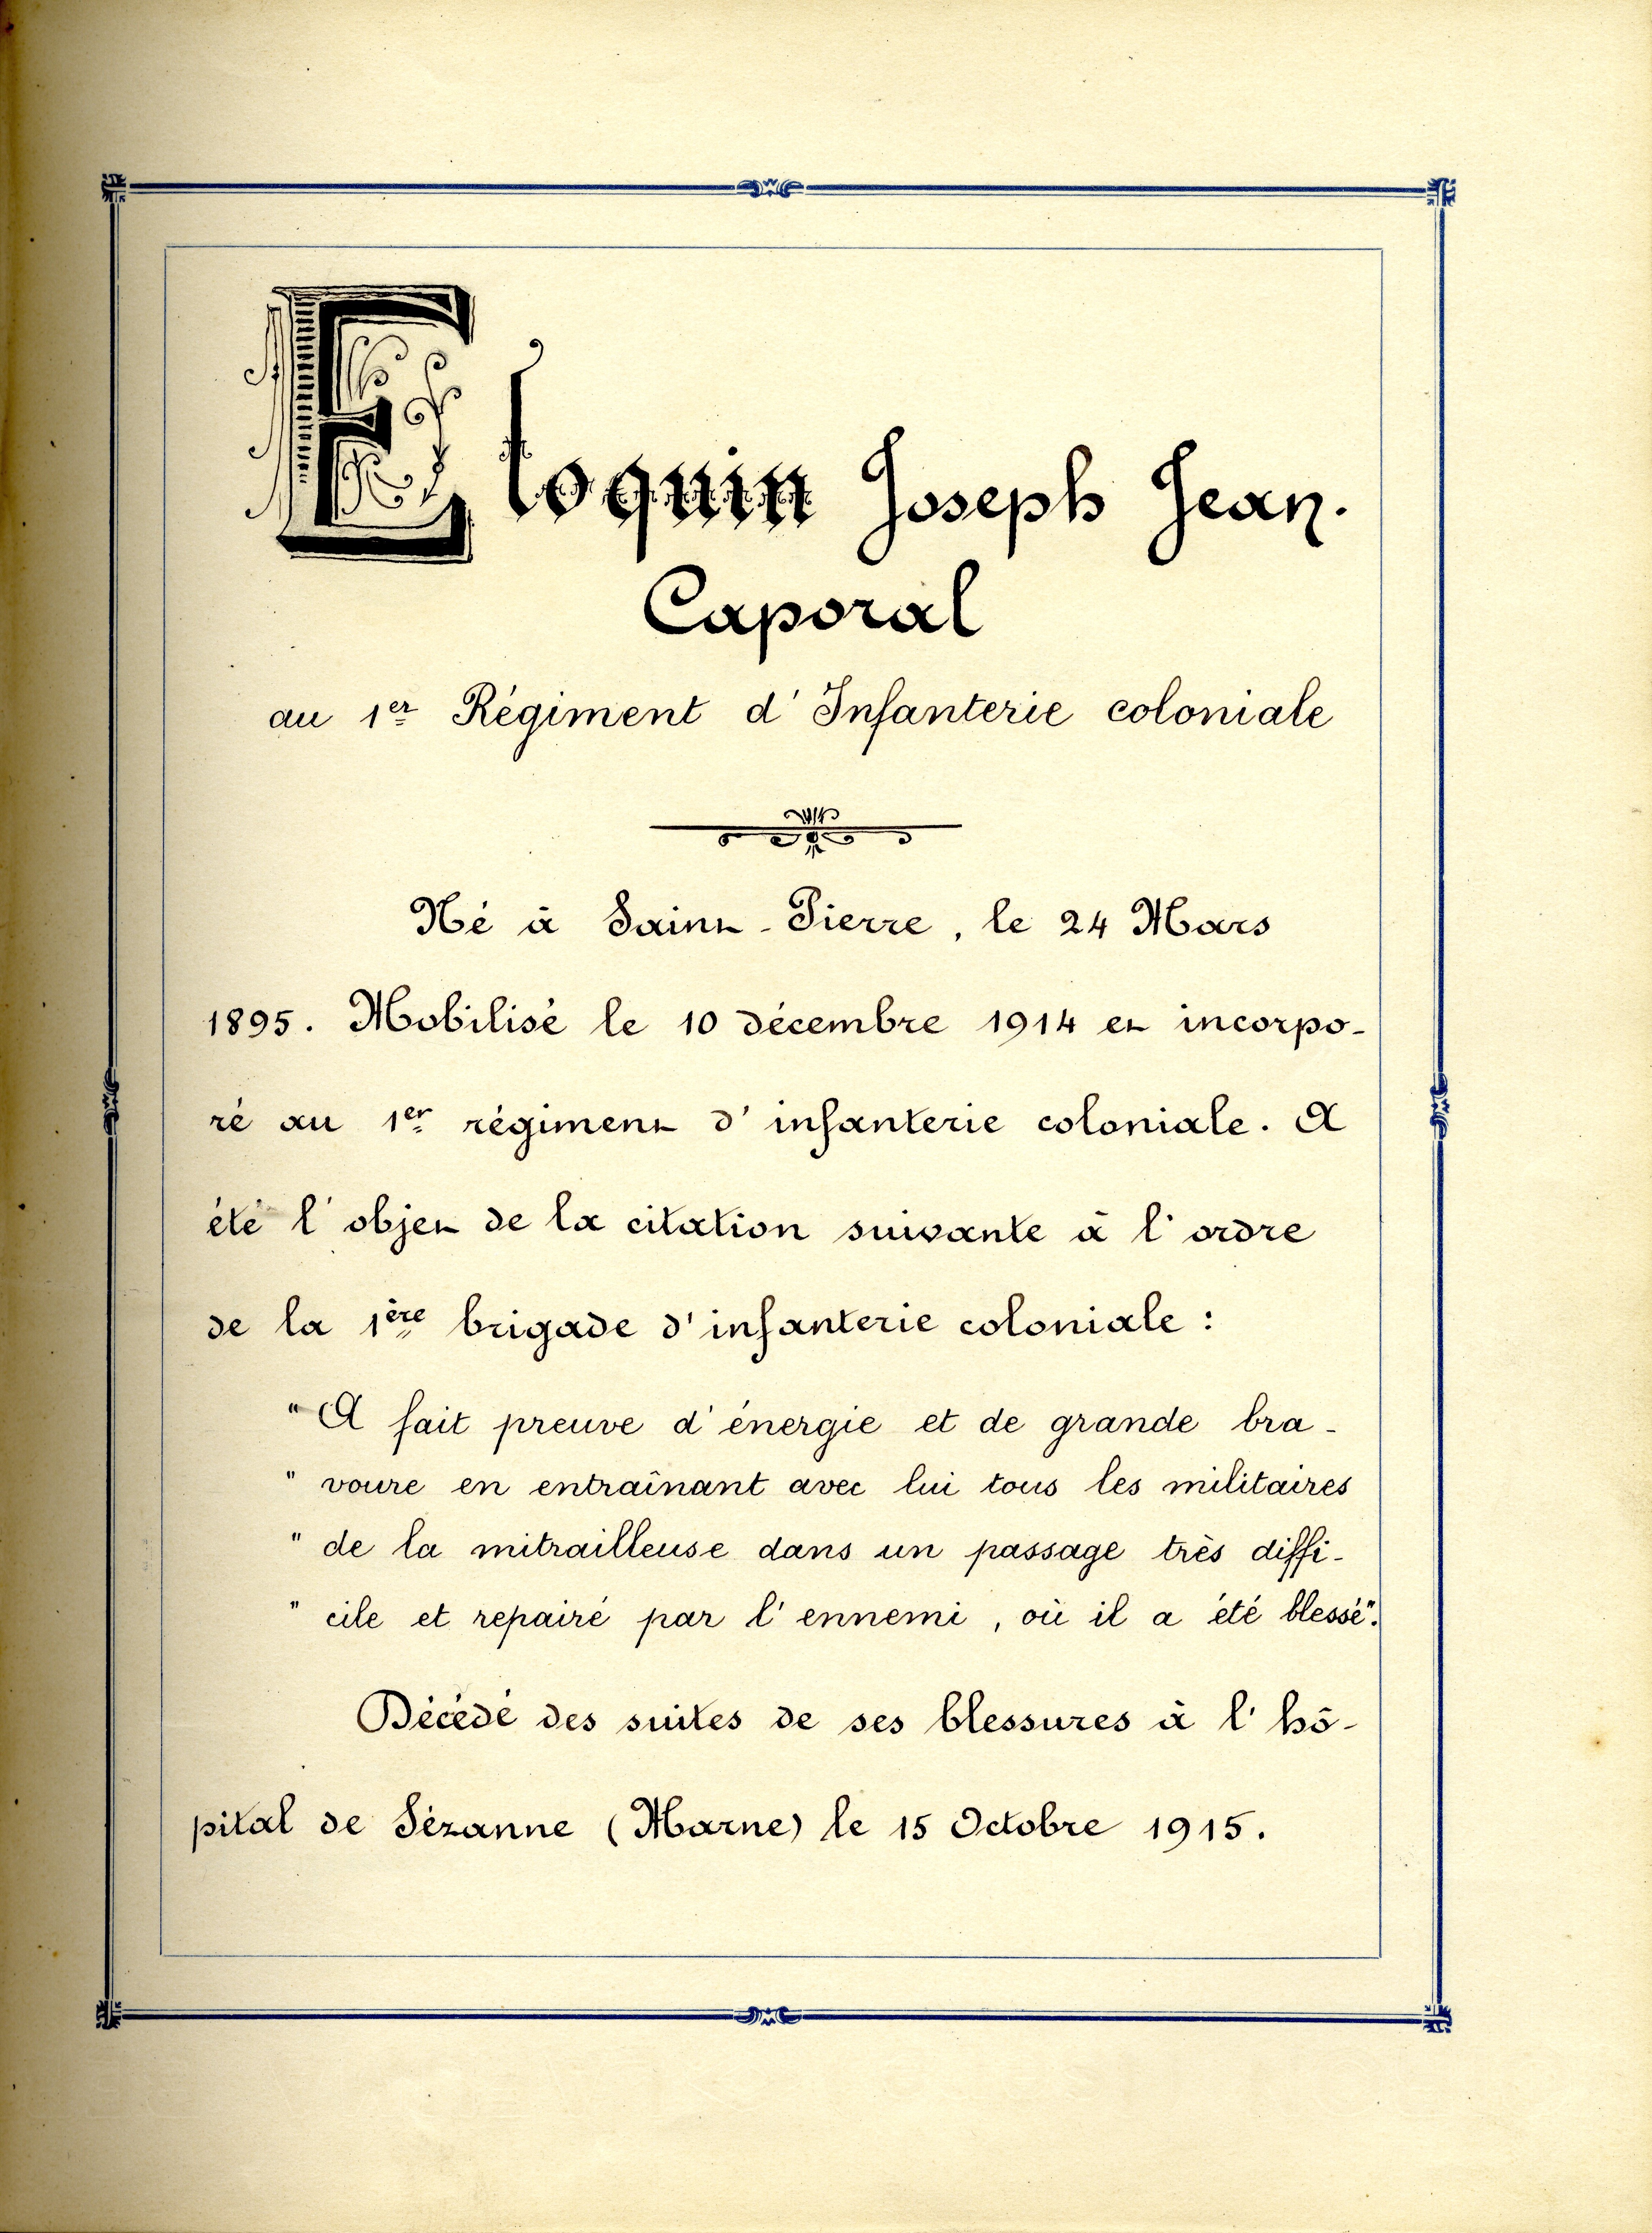 Eloquin Joseph Jean.
Caporal
au 1er Régiment d'Infanterie coloniale
Né à Saint-Pierre, le 24 Mars
1895. Mobilisé le 10 décembre 1914 et incorpo-
ré au 1er régiment d'infanterie coloniale. A
été l'objet de la citation suivante à l'ordre
de la 1ère brigade d'infanterie coloniale :
"A fait preuve d'énergie et de grande bra-
" voure en entraînant avec lui tous les militaires
" de la mitrailleuse dans un passage très diffi-
" cile et repairé par l'ennemi, où il a été blessé".
Décédé des suites de ses blessures à l'hô-
pital de Sézanne (Marne) le 15 Octobre 1915.